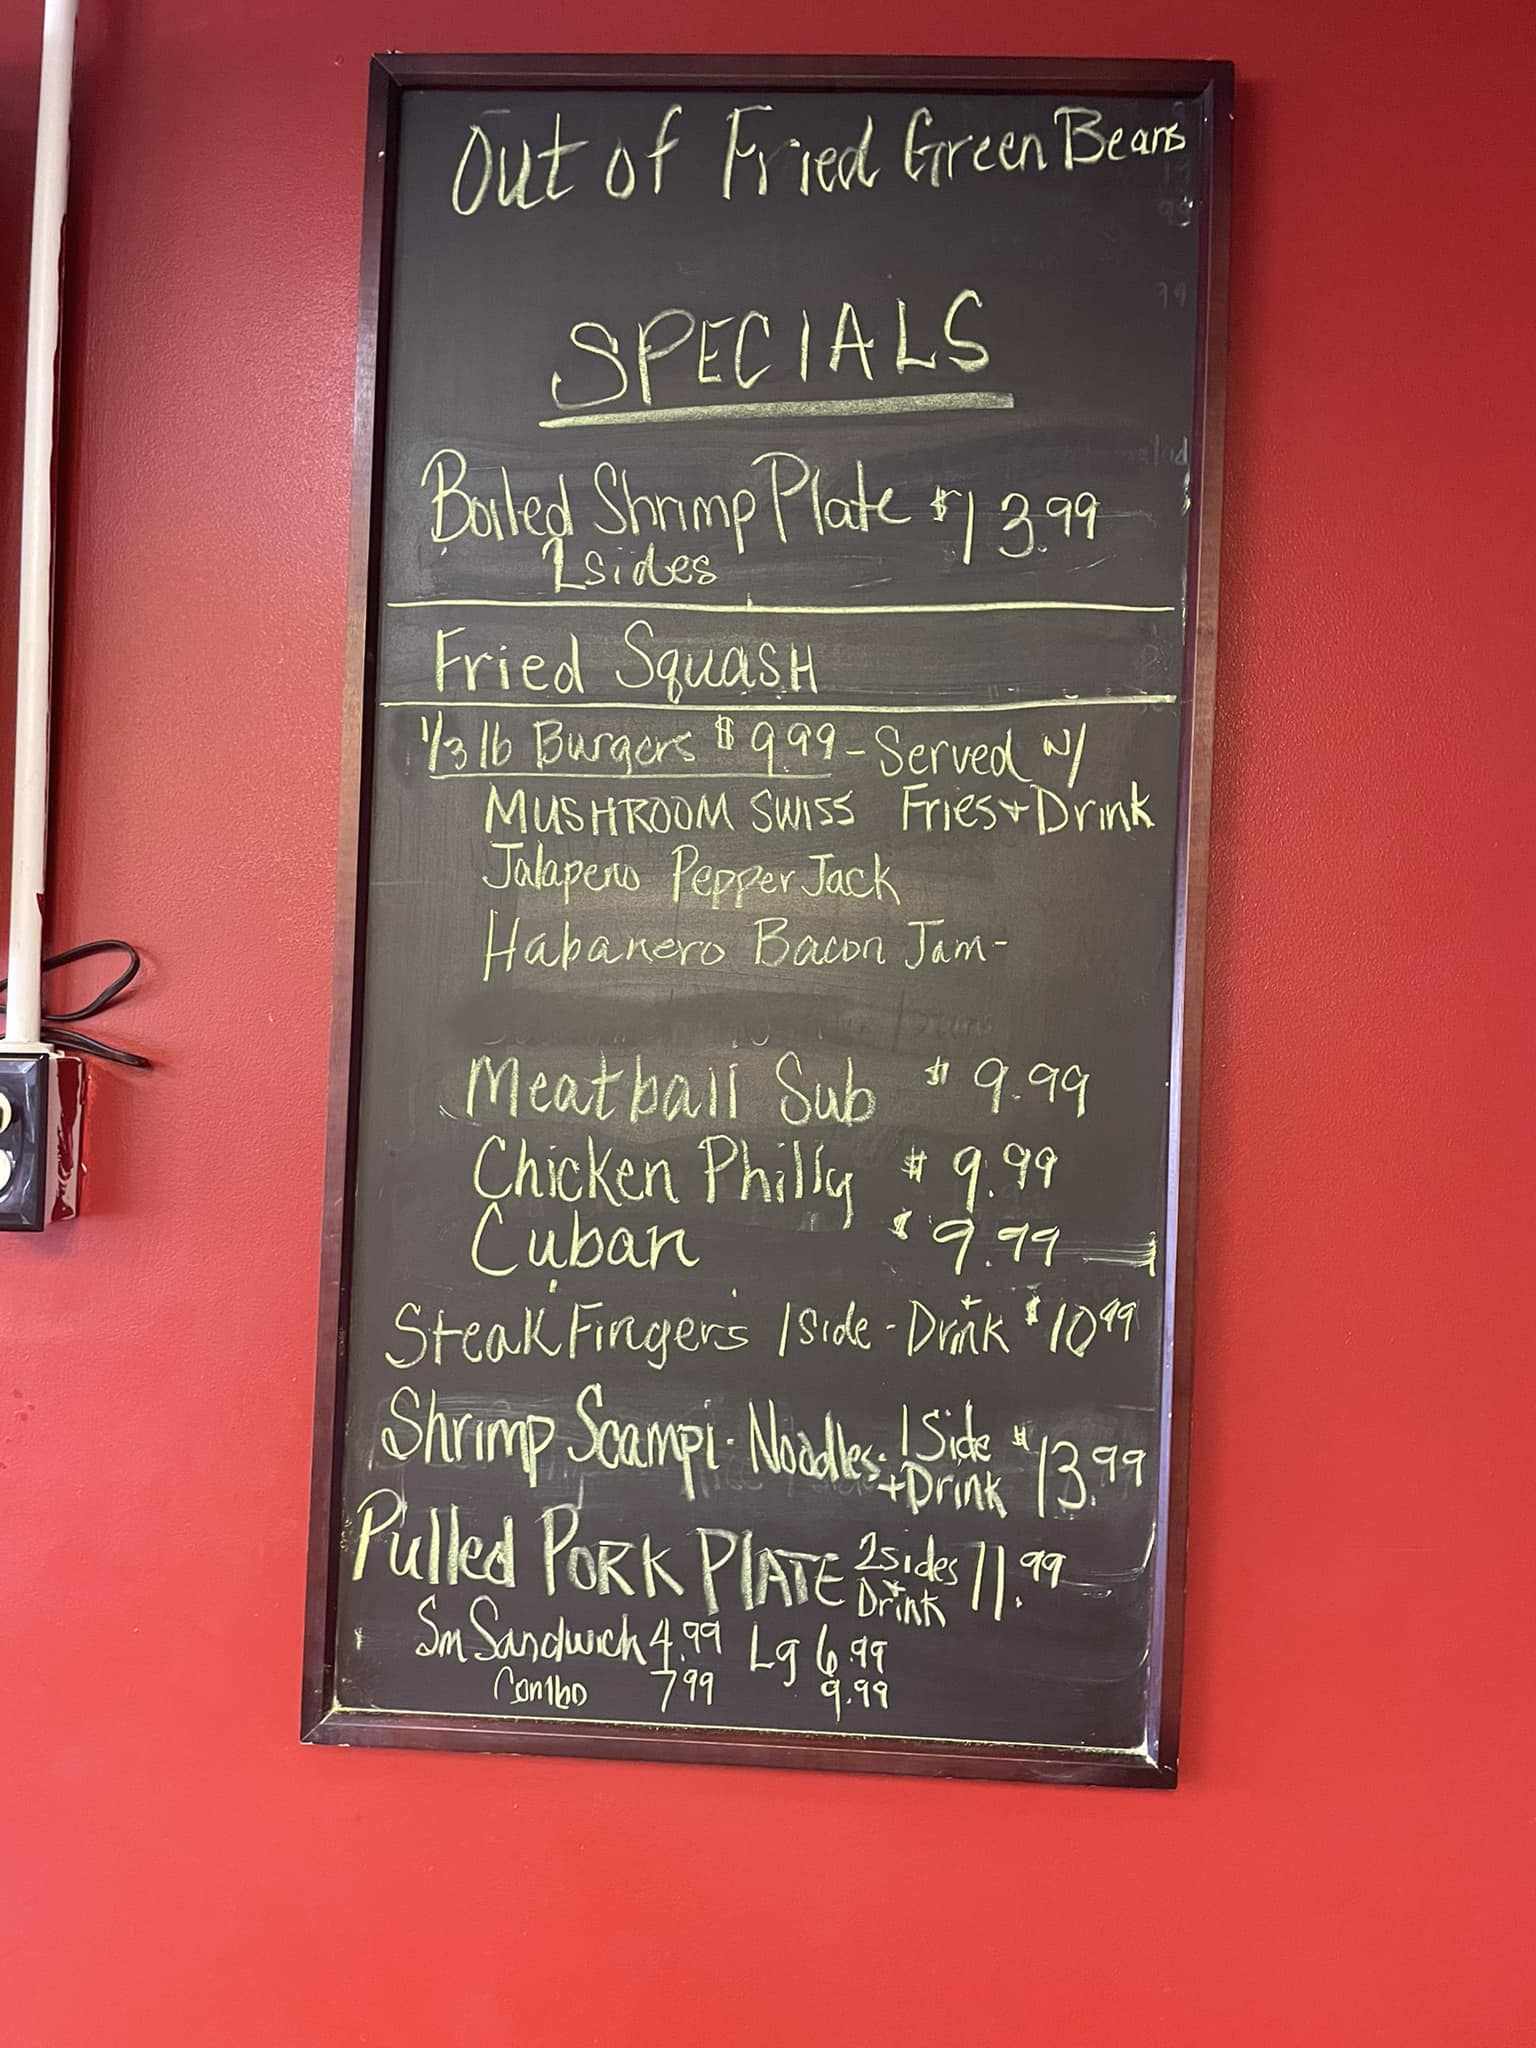 Out of Fried Green Beans
SPECIALS
Boiled Shrimp Plate $13.99
2 sides
Fried Squash
1/3 lb Burgers $9.99 - Served w/
MUSHROOM SWISS Fries + Drink
Jalapeno Pepper Jack
Habanero Bacon Jam -
Meatball Sub $9.99
Chicken Philly $9.99
Cuban $9.99
Steak Fingers 1 Side - Drink + $10.99
Shrimp Scampi - Noodles - 1 Side + Drink $13.99
Pulled PORK PLATE 2 sides + Drink 11.99
Sm Sandwich 4.99 Lg 6.99
Combo 7.99 9.99